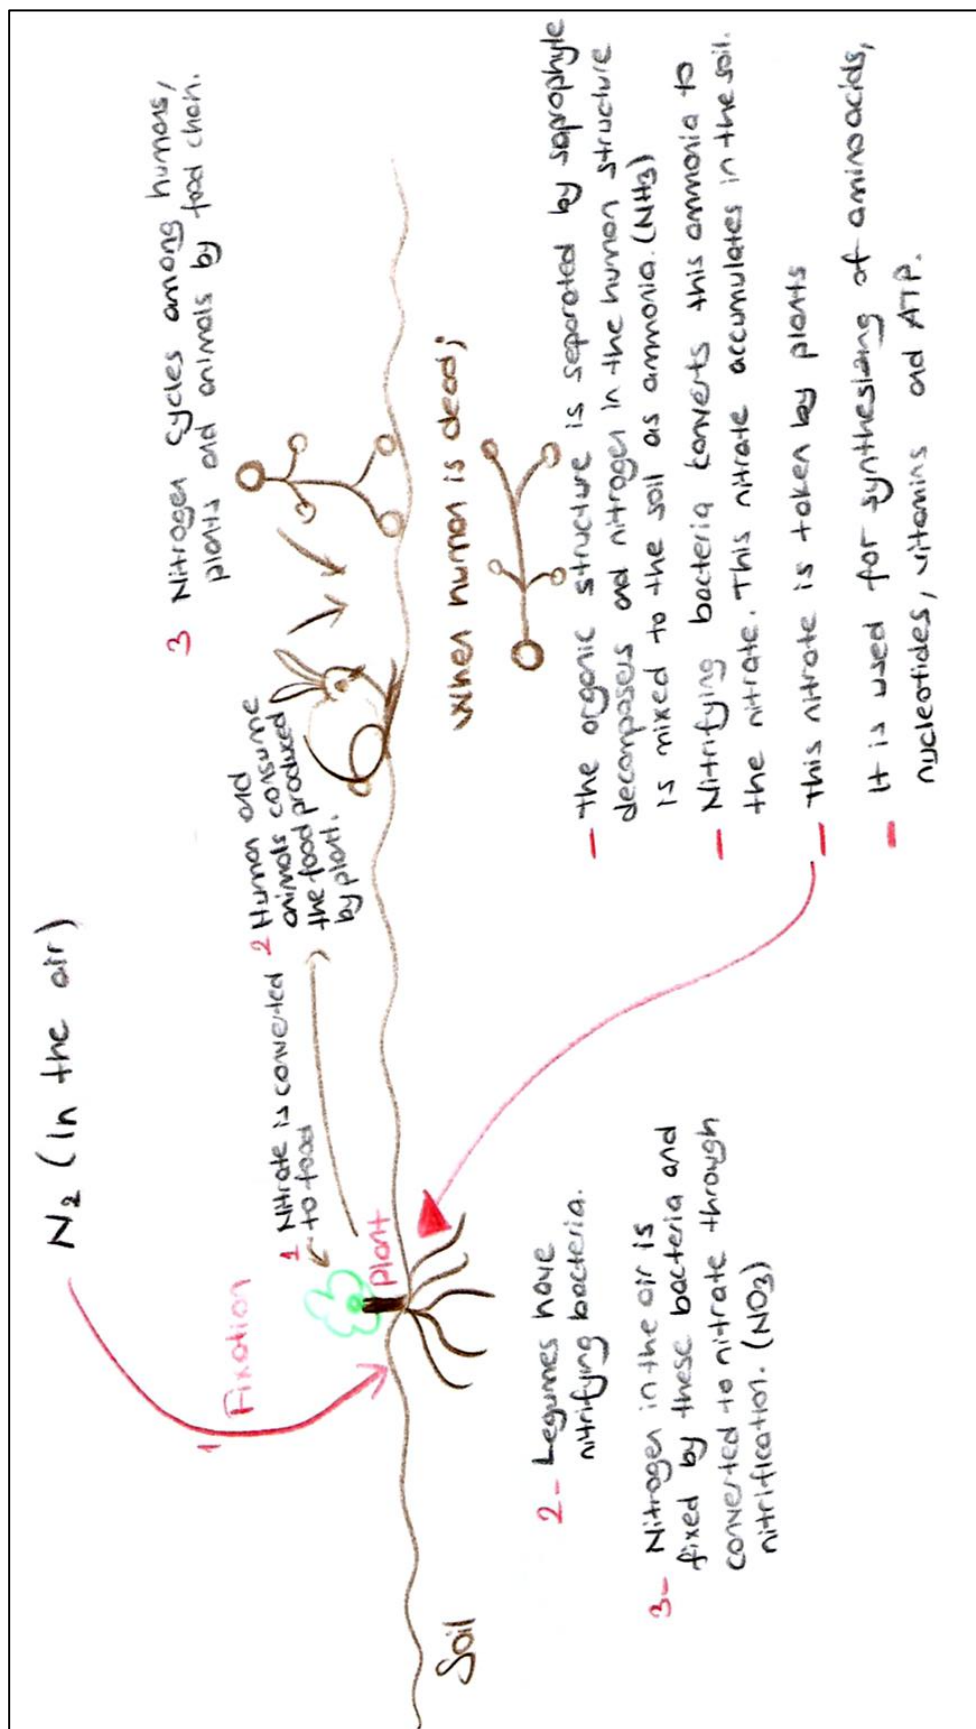 N₂ (In the air)
1 Fixation
1 Nitrate is converted
to food
Plant
2 Human and
animals consume
the food produced
by plant.
3 Nitrogen cycles among humans,
plants and animals by food chain.
Soil
2- Legumes have
nitrifying bacteria.
3- Nitrogen in the air is
fixed by these bacteria and
converted to nitrate through
nitrification. (NO3)
When human is dead;
- the organic structure is separated by saprophyle
decomposers and nitrogen in the human structure
is mixed to the soil as ammonia. (NH3)
- Nitrifying bacteria converts this ammonia to
the nitrate. This nitrate accumulates in the soil.
- this nitrate is taken by plants
- It is used for synthesizing of aminoacids,
nucleotides, vitamins and ATP.